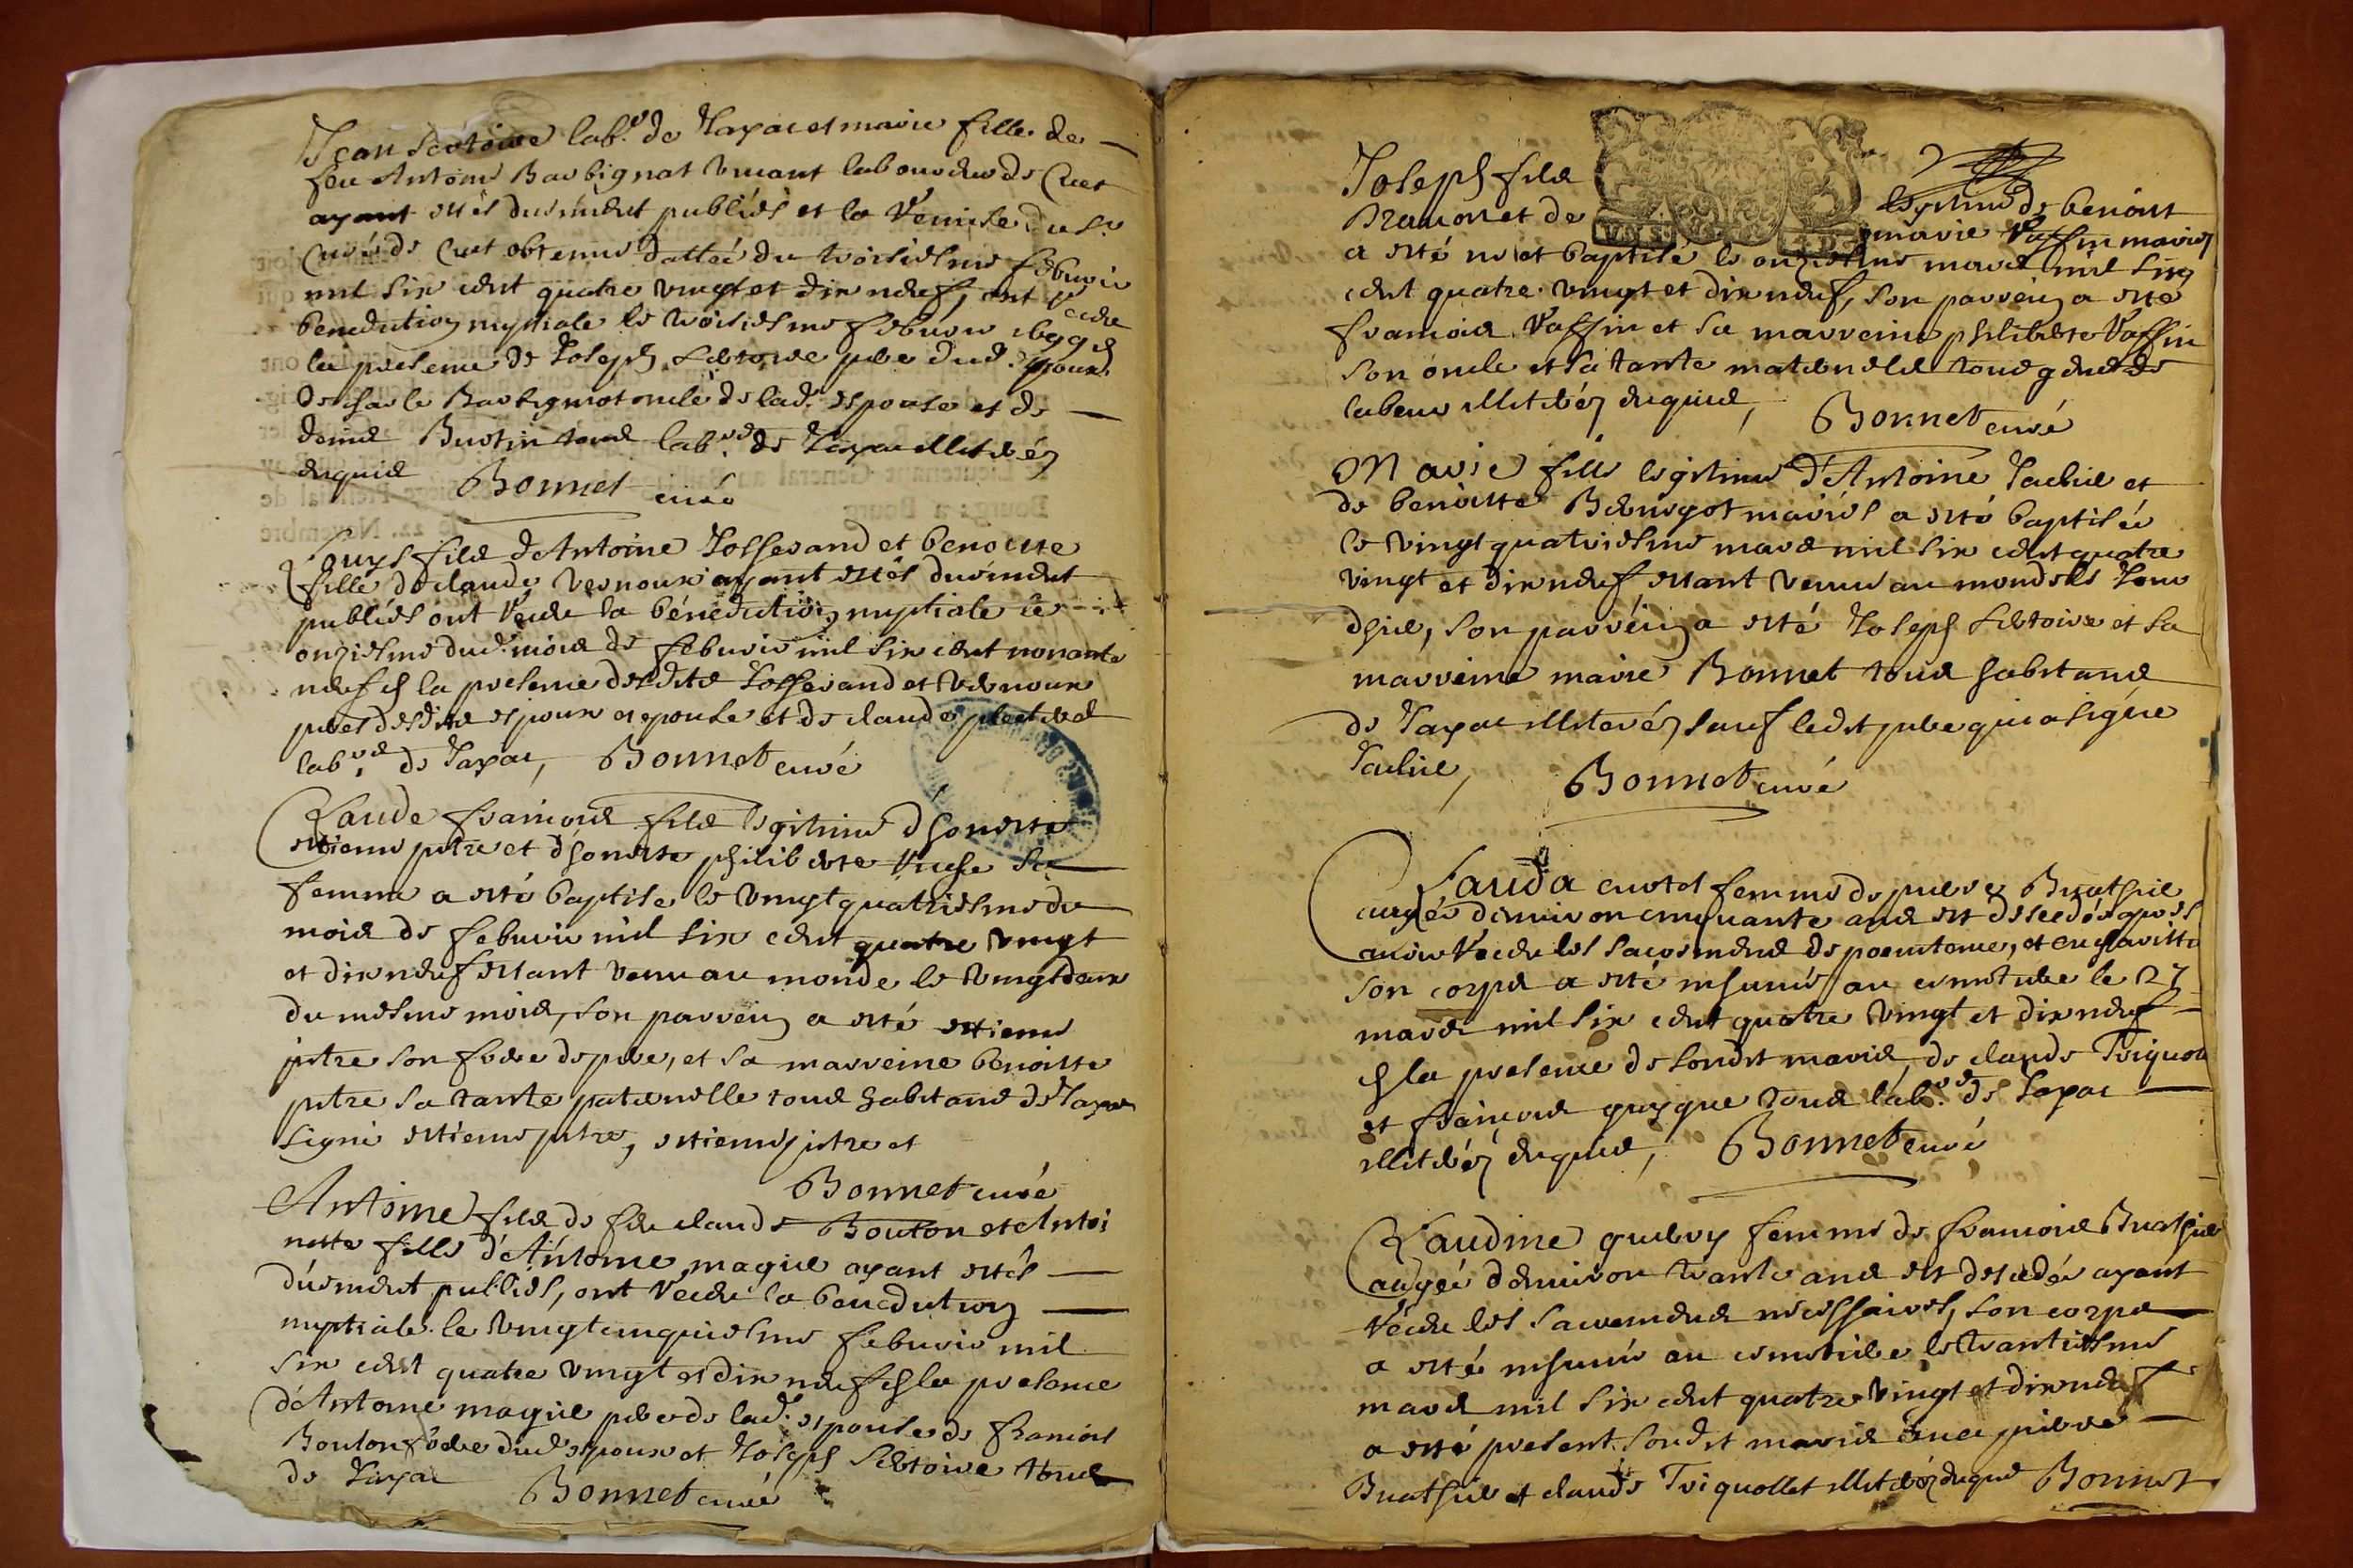 Jean Sertoire lab.r de Jayac et marie fille de
feu Antoine Barbignat vivant laboureur de Cuet
ayant estés duement publiés et la remise du Sr
Curé de Cuet obtenue dattée du troisiesme febvrier
mil six cent quatre vingt et dix neuf, ont receu
benediction nuptiale le troisiesme febvrier 1699 en
la presence de Joseph Sertoire pere dud. Epoux
de Charle Barbignat oncle de lad. espouse et de
Denis Buotin tous lab.rs de Jayac illiterés
enquis Bonnet curé
Louys fils d'Antoine Josserand et benoiste
fille de claude Vernoux ayant estés duement
publiés ont receu la bénédiction nuptiale le
onziesme dud. mois de febvrier mil six cent nonante
neuf en la presence desdits Josserand et Vernoux
peres desdits espoux et epouse et de claude
lab.rs de Jayac, Bonnet curé
Claude françois fils legitime d'honeste
estienne pitre et d'honeste philiberte Vuche sa
femme a esté baptisé le vingt quatriesme du
mois de febvrier mil six cent quatre vingt
et dix neuf estant venu au monde le vingt deux
du mesme mois, son parrein a esté estienne
pitre son frere de pere, et sa marreine benoiste
pitre sa tante paternelle tous habitans de Jayac
signé estienne pitre, estienne pitre et
Bonnet curé
Antoine fils de feu claude Bouton et Antoi
nette fille d'Antoine magüe ayant estés
duement publiés, ont receu la benediction
nuptiale le vingt cinquiesme febvrier mil
six cent quatre vingt et dix neuf en la presence
d'Antoine magüe pere de lad. espouse de françois
Bouton frere dud. espoux et Joseph Sertoire tous
de Jayac Bonnet curé
Joseph fils legitime de benoist
Brauonet de marie Vaffin mariés
a esté né et baptisé le onziesme mars mil six
cent quatre vingt et dix neuf, son parrein a esté
françois Vaffin et sa marreine philiberte Vaffin
son oncle et sa tante maternels tous gens de
labeur illiterés enquis, Bonnet curé
Marie fille legitime d'Antoine Jachié et
de benoiste Bernigot mariés a esté baptisée
le vingt quatriesme mars mil six cent quatre
vingt et dix neuf, estant venue au monde le jour
d'hier, son parrein a esté Joseph Sertoire et sa
marreine marie Bonnet tous habitans
de Jayac illiterés sauf ledit pere qui a signé
Jachié, Bonnet curé
Clauda curtet femme de pierre Buathié
aagée d'environ cinquante ans est decedée apres
avoir receu les sacremens de poenitence, et eucharistie
son corps a esté inhumé au cimetiere le 27
mars mil six cent quatre vingt et dix neuf
en la presence de sondit maris, de claude Triquot
et françois guigue tous lab.rs de Jayac
illiterés enquis, Bonnet curé
Claudine guerry femme de françois Buathié
aagée d'environ trante ans est decedée ayant
receu les sacremens necessaires, son corps
a esté inhumé au cimetiere le trantiesme
mars mil six cent quatre vingt et dix neuf
a esté present sondit maris pierre
Buathié et claude Triquollet illiterés enquis Bonnet